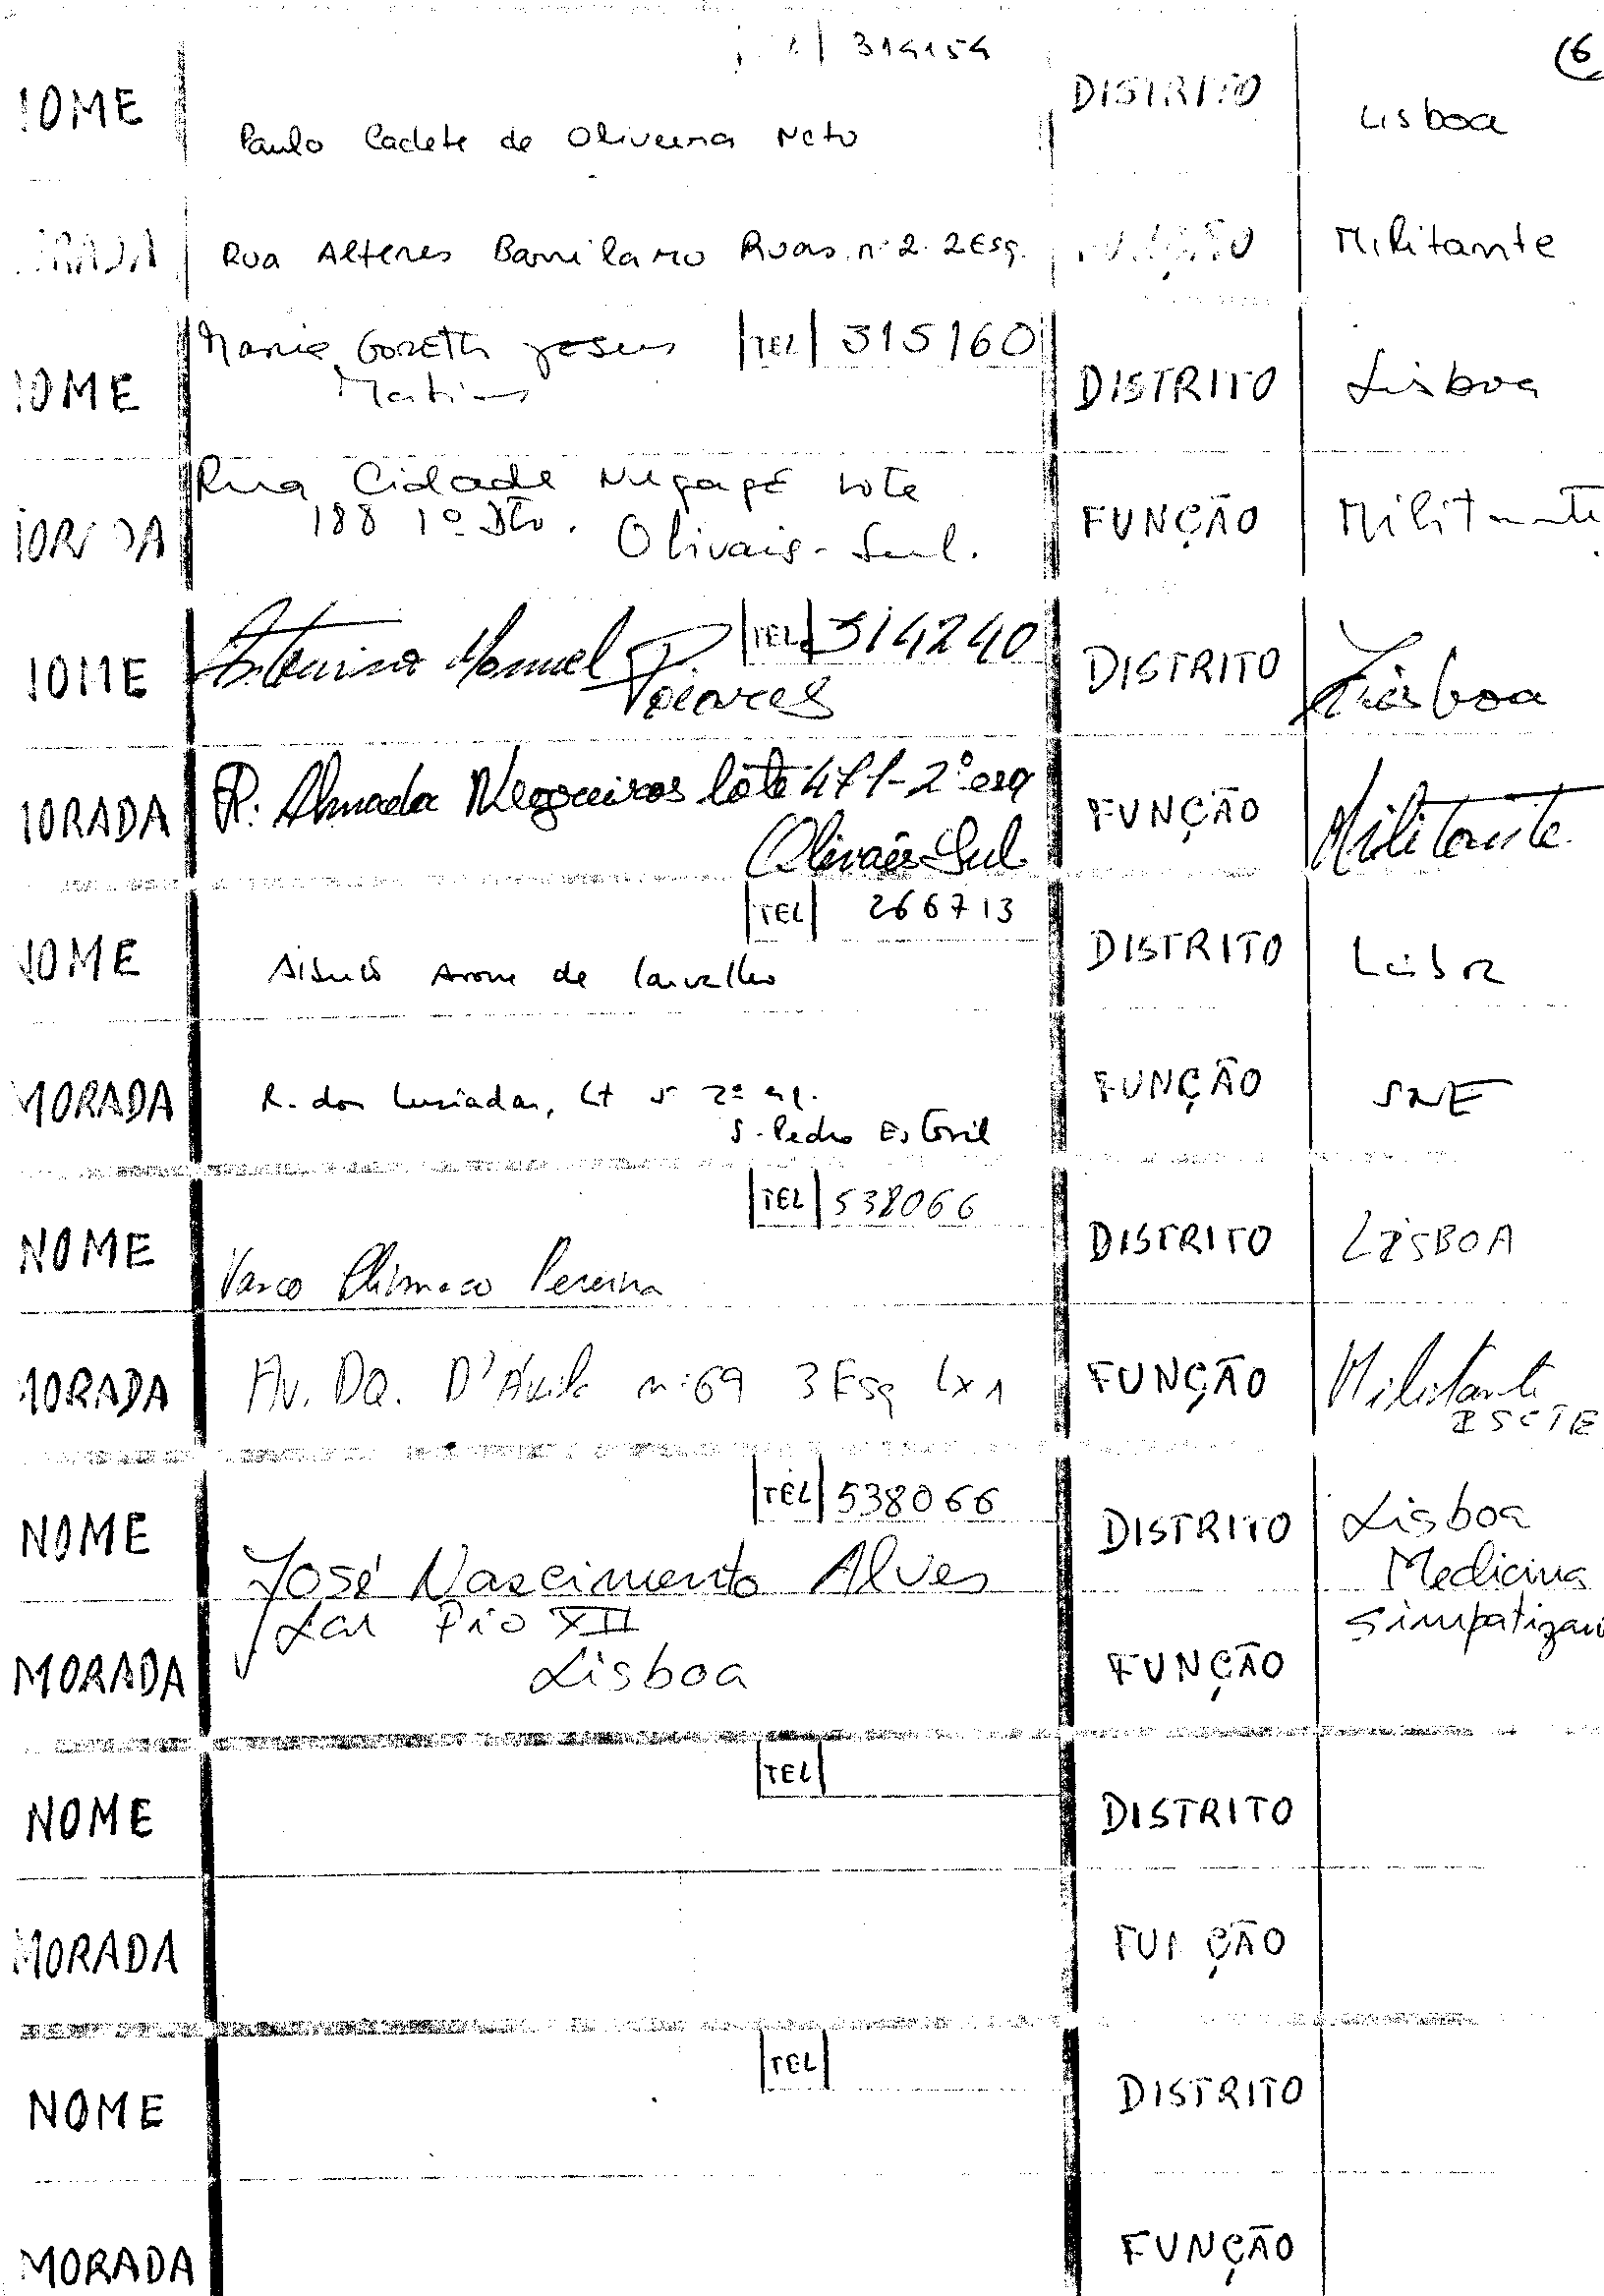 314154
(6
NOME Paulo Cadete de Oliveira Neto DISTRITO Lisboa
MORADA Rua Alferes Barrilaro Ruas nº 2. 2 Esq. FUNÇÃO Militante
Maria Goretti Jesus TEL 315160
NOME Martins DISTRITO Lisboa
Rua Cidade Negage Lote
MORADA 188 1º Dto. Olivais-Sul. FUNÇÃO Militante
TEL 314240
NOME Manuel DISTRITO Lisboa
MORADA R. Almada Negreiros lote 471-2º esq FUNÇÃO Militante
Olivais Sul
TEL 266713
NOME Arons de Carvalho DISTRITO Lisboa
MORADA R. dos Lusíadas, Lt 5 2º esq. FUNÇÃO
S. Pedro Estoril
TEL 538066
NOME Vasco Pereira DISTRITO LISBOA
MORADA Av. Dq. D'Ávila nº 69 3 Esq Lx 1 FUNÇÃO Militante
ISCTE
TEL 538066
NOME José Nascimento Alves DISTRITO Lisboa
Medicina
Lar Pio XII
MORADA Lisboa FUNÇÃO
TEL
NOME DISTRITO
MORADA FUNÇÃO
TEL
NOME DISTRITO
MORADA FUNÇÃO